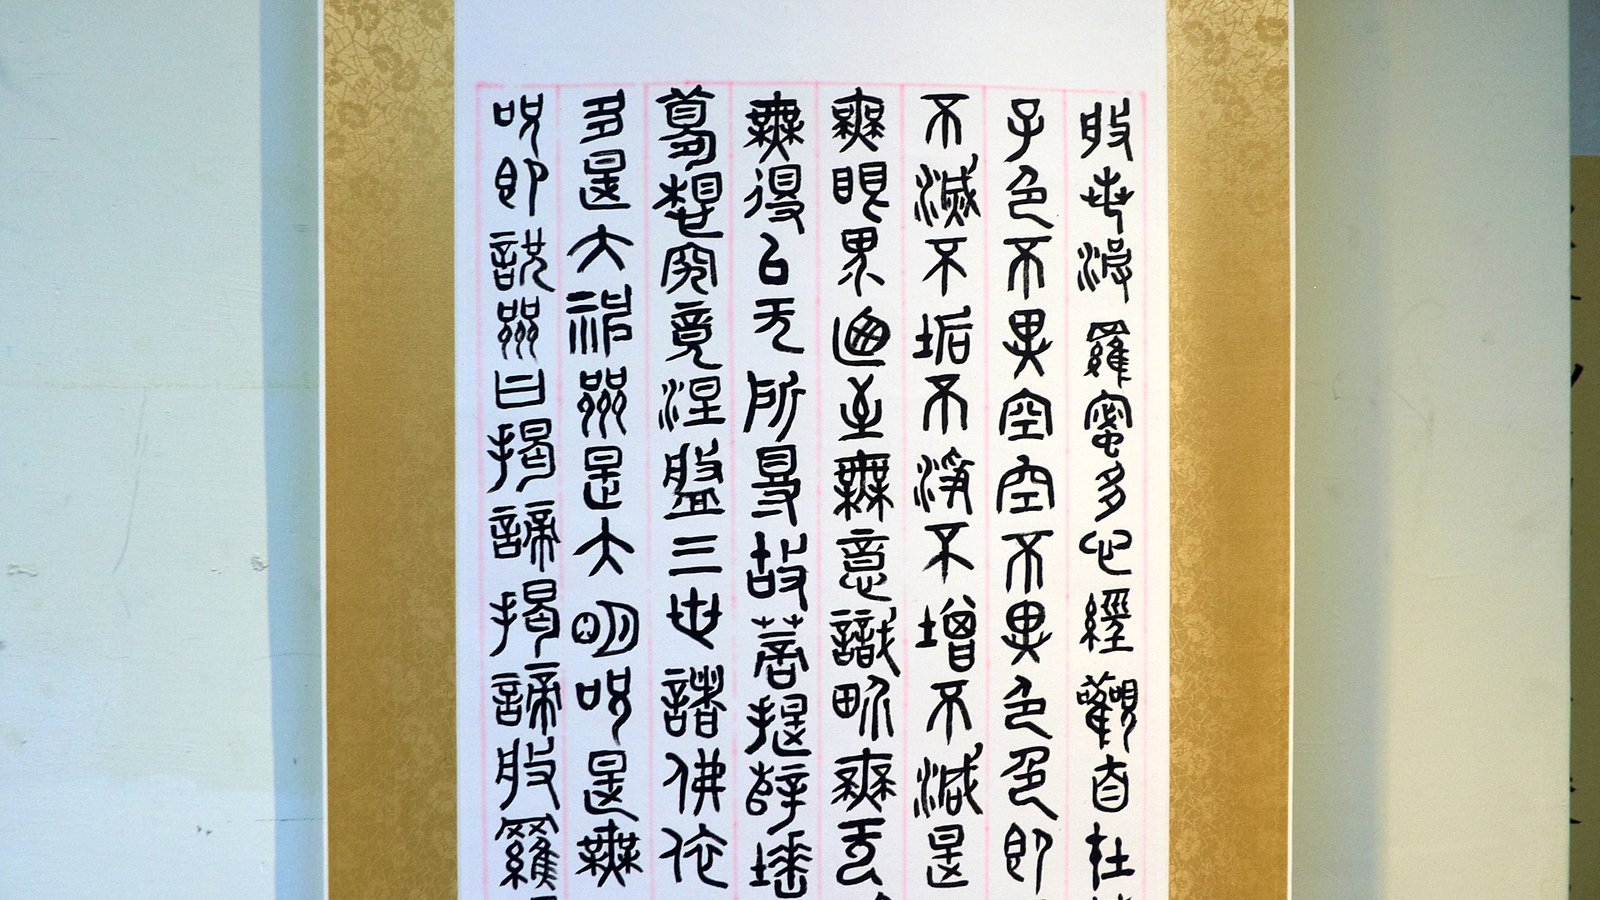 般若波羅蜜多心經觀自在
子色不異空空不異色色即
不滅不垢不淨不增不減是
無眼界迺至無意識界無无
無得以无所得故菩提薩埵
夢想究竟涅盤三世諸佛依
多是大神咒是大明呪是無
呪即說咒曰揭諦揭諦般羅